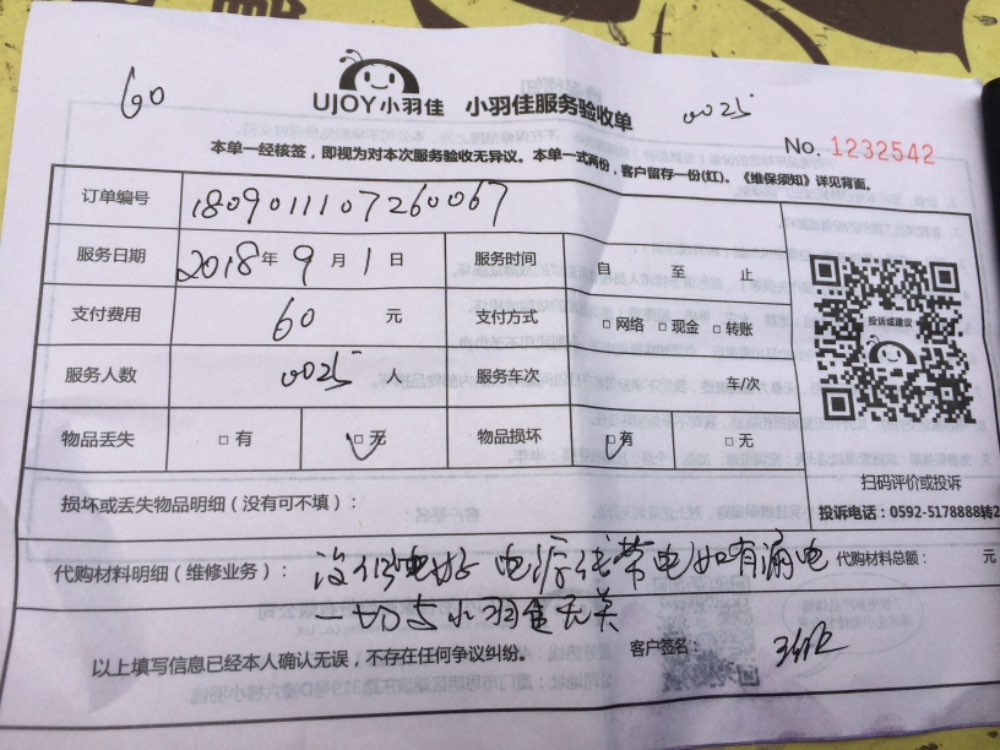 60
UJOY小羽佳 小羽佳服务验收单
0025
No. 1232542
本单一经核签，即视为对本次服务验收无异议。本单一式两份，客户留存一份(红)。《维保须知》详见背面。
订单编号 1809011107260067
服务日期 2018年9月1日 服务时间 自 至 止
支付费用 60 元 支付方式 □网络 □现金 □转账
投诉或建议
服务人数 0025 服务车次 车/次
物品丢失 □有 □无 物品损坏 □有 □无
扫码评价或投诉
损坏或丢失物品明细（没有可不填）：
投诉电话：0592-5178888转2
代购材料明细（维修业务）： 电源线带电如有漏电 代购材料总额： 元
一切与小羽佳无关
以上填写信息已经本人确认无误，不存在任何争议纠纷。 客户签名：